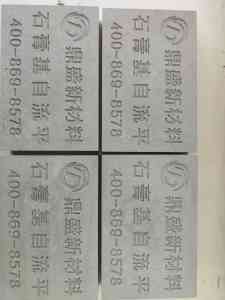 鼎盛新材料
石膏基自流平
400-869-8578
鼎盛新材料
石膏基自流平
400-869-8578
鼎盛新材料
石膏基自流平
400-869-8578
鼎盛新材料
石膏基自流平
400-869-8578